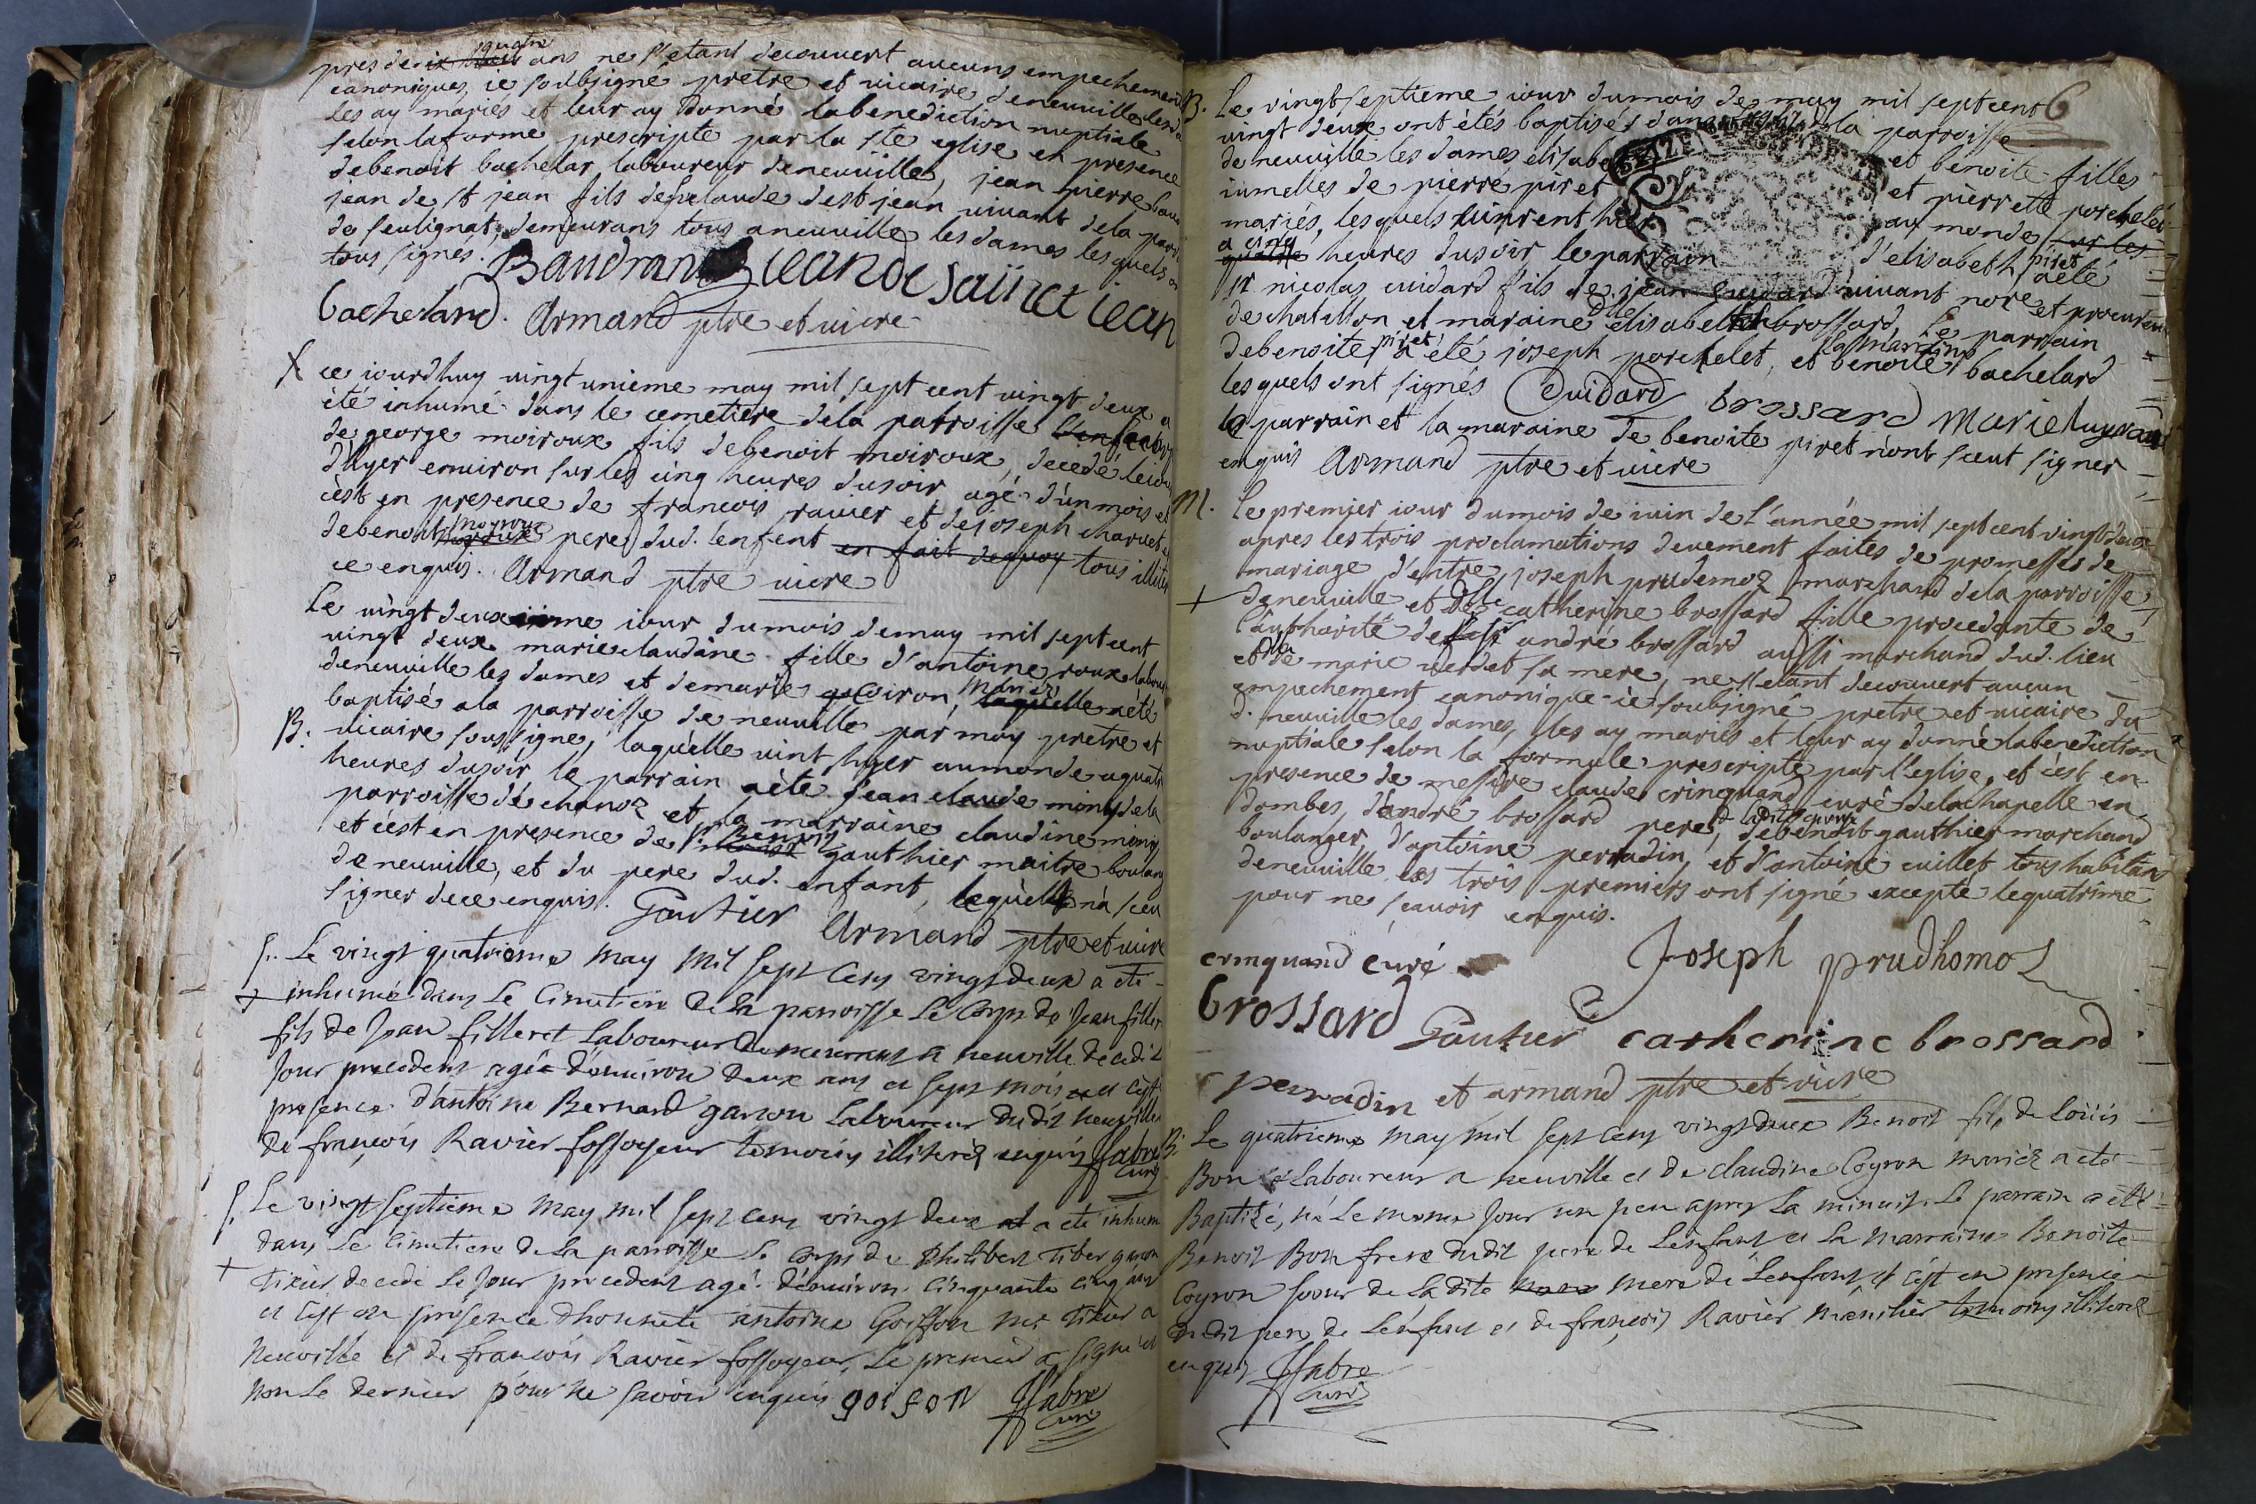 quatre
pres de ans ne s'etant decouvert aucuns empechemens
canoniques, ie soubsigné pretre et vicaire de neuville les da
les ay mariés et leur ay donné la benediction nuptiale
selon la forme prescripte par la ste eglise en presence
de benoit bachelar laboureur de neuville, jean pierre
jean de st jean fils de claude de st jean vivant de la paroi
de seulignat, demeurans tous a neuville les dames lesquels on
tous signés. Baudran jean de sainct jean
bachelard. Armand ptre et vicre
X ce iourdhuy vingt unieme may mil sept cent vingt deux a
été inhumé dans le cemetiere de la parroisse
de george moiroux fils de benoit moiroux, decedé le iour
d'hyer environ sur les cinq heures du soir, agé d'un mois et
c'est en presence de francois ravier et de joseph charvet et
de benoit moyroux pere dud. l'enfent en fait de quoy tous illiter
ce enquis. Armand ptre vicre
Le vingt deuxieme iour du mois de may mil sept cent
vingt deux marie claudine fille d'antoine roux labour
de neuville les dames et de marie goiron, mariez laquelle a eté
baptisé a la parroisse de neuville par moy pretre et
B. vicaire soussigné, laquelle vint hyer au monde a quatre
heures du soir le parrain a été jean claude
parroisse de chanoz et la marraine claudine
et c'est en presence de Sr. Benoit gauthier maitre boulang
de neuville, et du pere dud. enfant, lequel n'a sceu
signer de ce enquis. Gautier Armand ptre et vicre
S. Le vingt quatrieme may mil sept cens vingt deux a eté
+ inhumé dans le cimetiere de la parroisse le corps de Jean filler
fils de Jean filleret laboureur demeurant a neuville decedé
jour precedent agé d'environ deux ans et sept mois et c'est
presence d'antoine Bernard garçon laboureur dudit neuville
de françois Ravier fossoyeur temoins illiterez enquis Jfabre
curé
S. Le vingt septieme may mil sept cens vingt deux a eté inhum
dans le cimetiere de la parroisse le corps de Philibert Tiber garçon
+ tixier decedé le jour precedent agé d'environ cinquante cinq ans
et c'est en presence d'honnete antoine Goiffon me tixier a
neuville et de francois Ravier fossoyeur, le premier a signé et
non le dernier pour ne savoir enquis goifon Jfabre
curé
6
B. Le vingt septieme iour du mois de may mil sept cent
vingt deux ont étés baptisés dans la parroisse
de neuville les dames elisabe et benoite filles
iumelles de pierre piret et pierrette porchelet
mariés, lesquels vinrent hier au monde sur les
a cinq
quatre heures du soir le parrain d'elisabeth piret a eté
sr nicolas cuidard fils de jean guidard vivant nore et procureur
de chatillon et maraine Dlle elisabeth brossard, Le parrain
de benoite piret a été joseph porchelet, et la marraine benoite bachelard
lesquels ont signés Cuidard brossard Marie
le parrain et la maraine de benoite piret n'ont sceut signer
enquis Armand ptre et vicre
M. Le premier iour du mois de iuin de l'année mil sept cent vingt deux
apres les trois proclamations deuement faites de promesses de
mariage d'entre joseph prudemoz marchand de la parroisse
+ de neuville et Dlle catherine brossard fille procedante de
l'authorité de sr andré brossard aussi marchand dud. lieu
et Dlle marie verdet sa mere, ne s'etant decouvert aucun
empechement canonique ie soubsigné pretre et vicaire du
d. neuville les dames, les ay mariés et leur ay donné la benediction
nuptiale selon la formule prescripte par l'eglise, et c'est en
presence de messire claude crinquand curé de la chapelle en
dombes, d'andré brossard pere d. ladite epouse de benoit gauthier marchand
boulanger, d'antoine perradin, et d'antoine cuillet tous habitans
de neuville les trois premiers ont signé excepte le quatrime
pour ne scavoir enquis.
crinquand curé Joseph prudhomoz
brossard Gautier catherine brossard
perradin et armand ptre et vicre
B. Le quatrieme may mil sept cens vingt deux Benoit fils de Loüis
Bon laboureur a neuville et de claudine Coyron mariez a eté
Baptizé, né le meme jour un peu apres la minuit. Le parrain a été
Benoit Bon frere dudit pere de l'enfant et la marraine Benoite
Coyron soeur de ladite mere de l'enfant et c'est en presence
dudit pere de l'enfant et de françois Ravier temoins illiterez
enquis Jfabre
curé